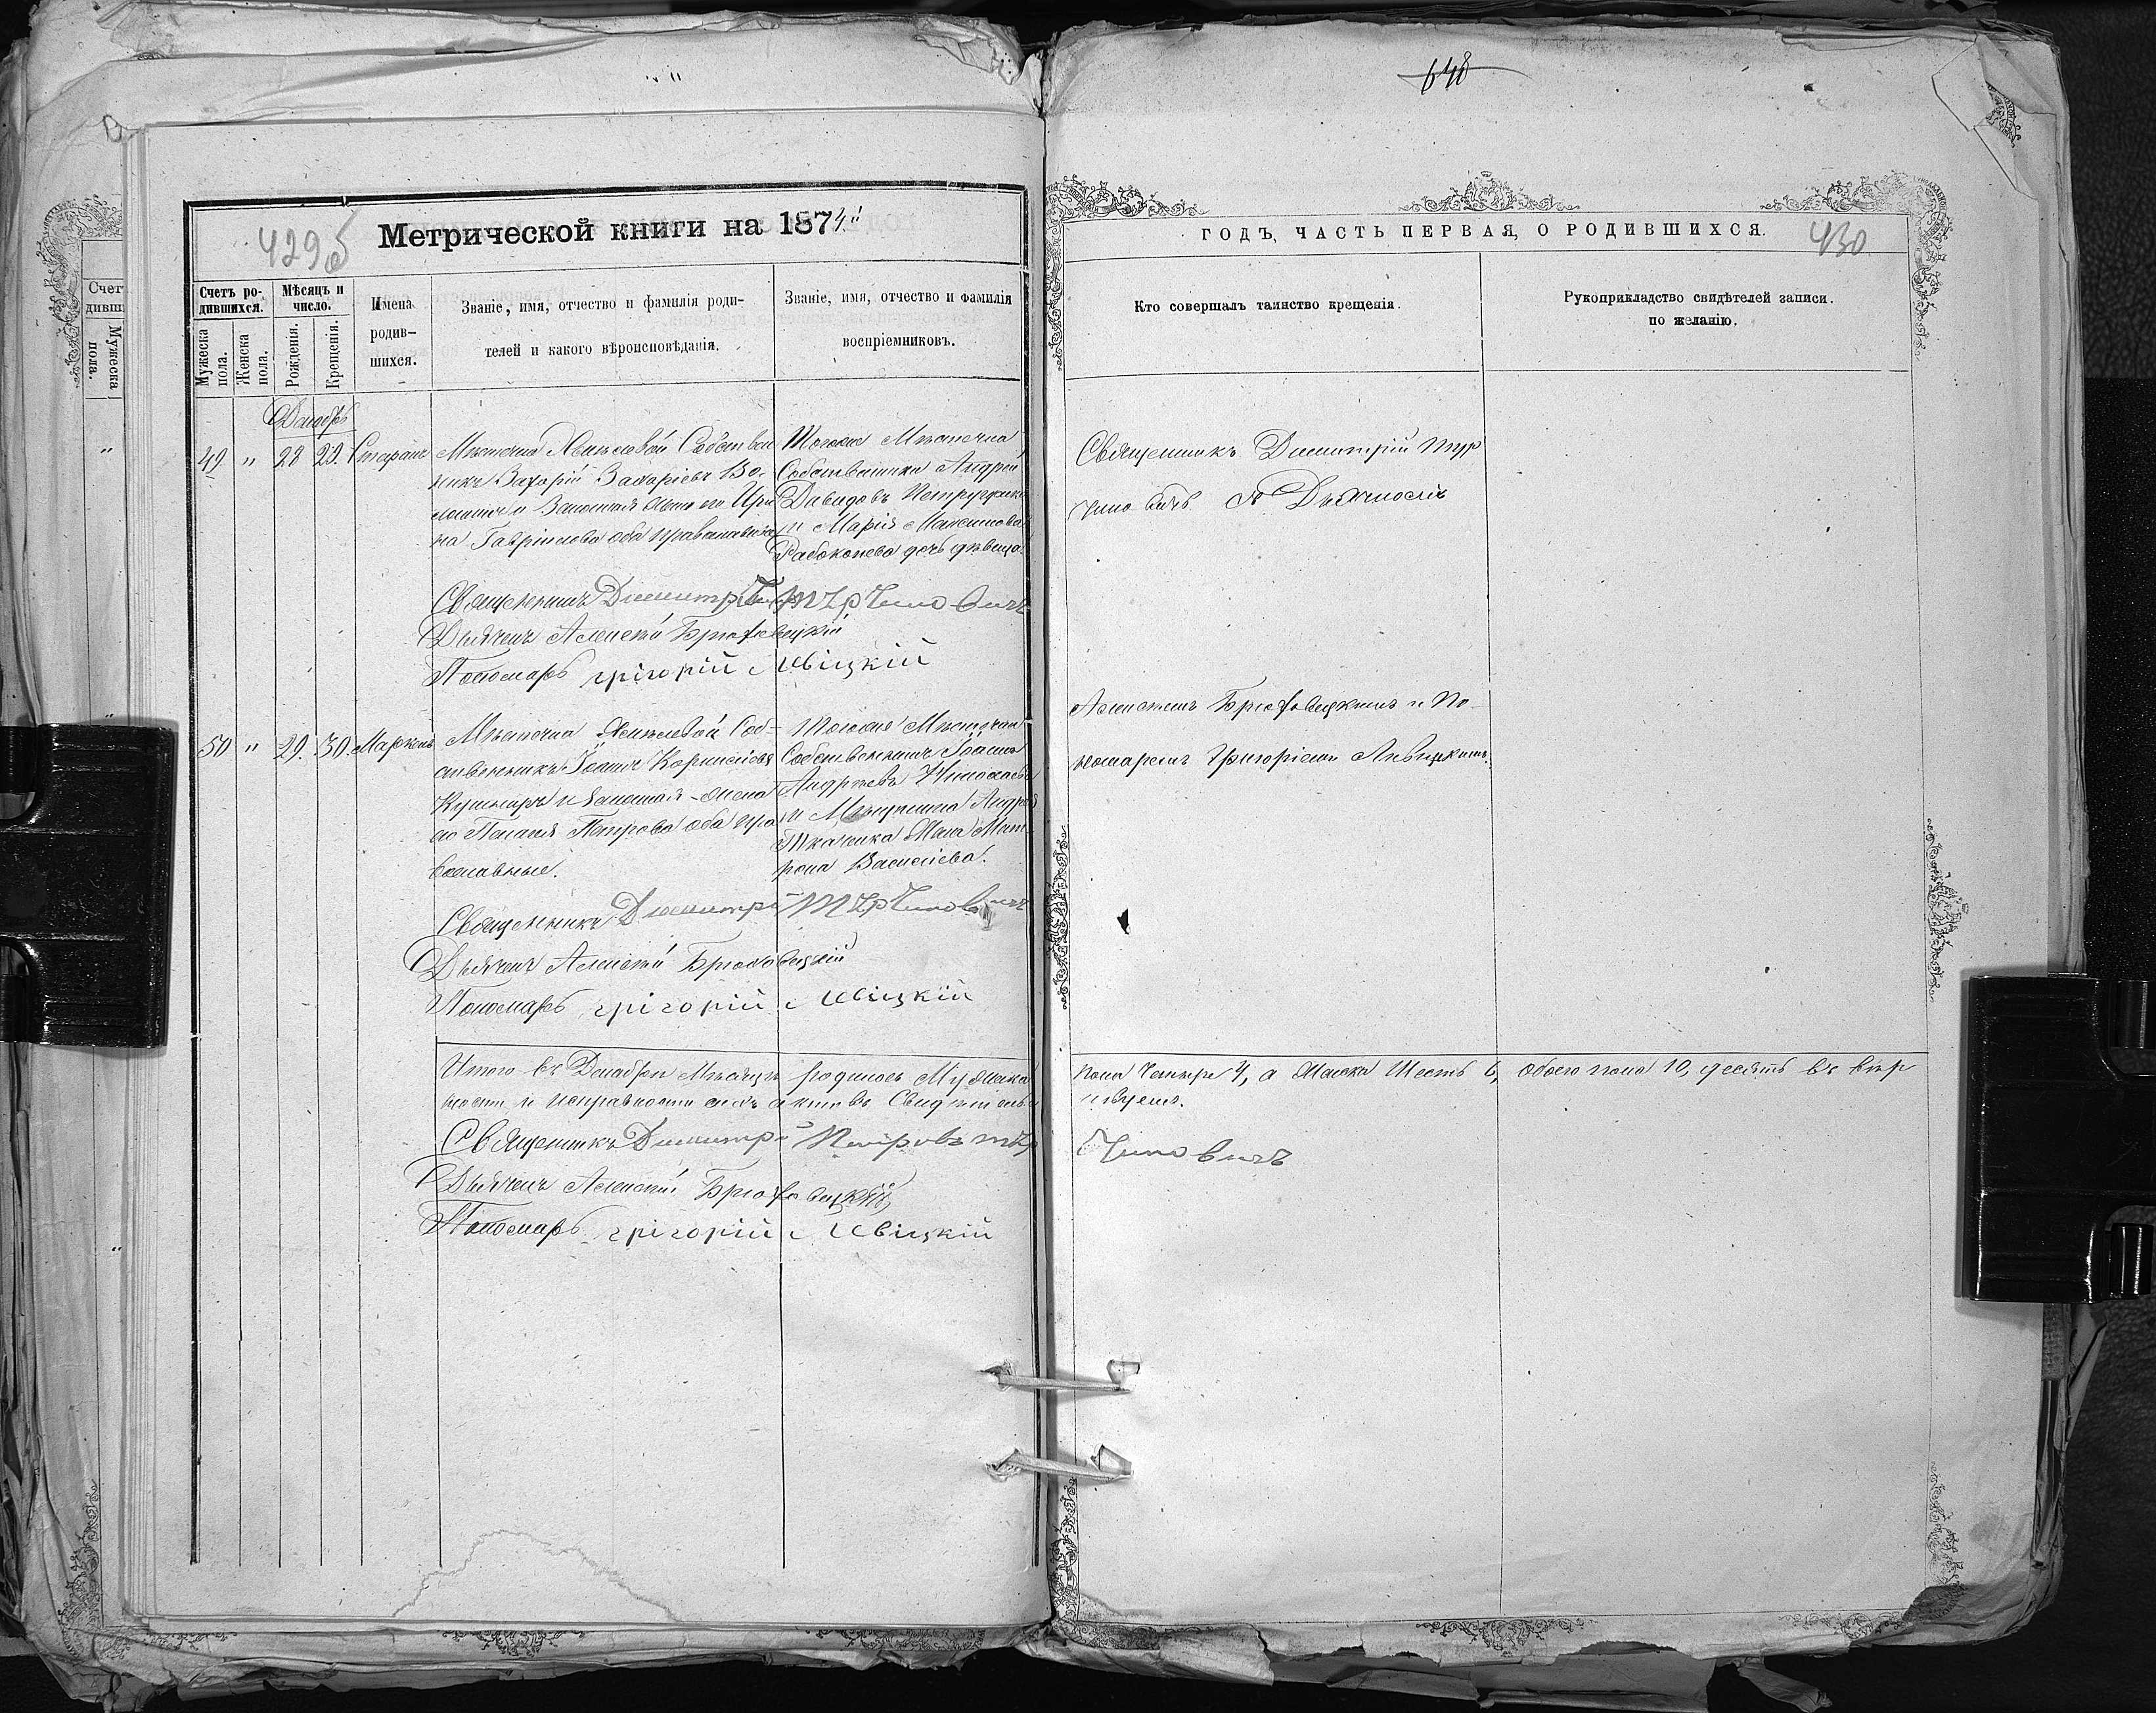 648
429об
Метрической книги на 1874й
Счетъ ро-
дившихся.
Мужеска пола.
Женска пола.
Мѣсяцъ и число.
Рожденія.
Крещенія.
Имена
родив-
шихся.
Званіе, имя, отчество и фамилія роди-
телей и какого вѣроисповѣданія.
Званіе, имя, отчество и фамилія
воспріемниковъ.
Декабрь
49 " 28 29.
Мѣстечка Собствен
никъ Захорій Захоріевъ Во-
и Законная Жена его Ири
на Гавріилова оба православны
Тогоже Мѣстечка
Собственника Андрей
Давидовъ
и Марія Максимова
дочь дѣвица.
Священникъ Димитрій Турчиновичъ
Дьячекъ Алексѣй Брюховецкій
Пономарь григорій Левіцкій
50 " 29. 30. Маркелъ
Мѣстечка Соб-
ственникъ Іоаннъ Корнилієвъ
Кушниръ и Законная жена
его Пелагія Петрова оба пра
вославные.
Тогоже Мѣстечка
Собственникъ Іоаннъ
Андреевъ
и Мѣщанина Андрея
Жена Мат
рона Василіева.
Священникъ Димитрій Турчиновичъ
Дьячекъ Алексѣй Брюховецкій
Пономарь григорій Левіцкій
Итого въ Декабрѣ Мѣсяцѣ родилось Мужеска
ности и исправности сихъ актовъ Свидѣтель
Священникъ Димитрій Петровъ Тур
Дьячекъ Алексѣй Брюховецкій
Пономарь григорій Левіцкій
ГОДЪ, ЧАСТЬ ПЕРВАЯ, О РОДИВШИХСЯ.
430
Кто совершалъ таинство крещенія.
Рукоприкладство свидѣтелей записи.
по желанію.
Священникъ Димитрій Тур
чиновичъ съ Дьячкомъ
Алексѣемъ Брюховецкимъ и По-
номаремъ Григоріемъ Левицкимъ.
пола Четыре 4, а Женска Шесть 6, обоего пола 10, десять въ вѣр
ствуемъ.
Чиновичъ